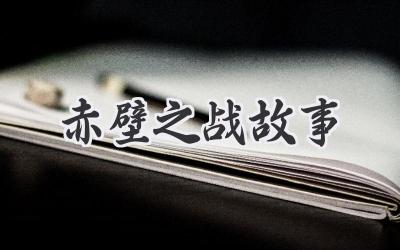 赤壁之战故事